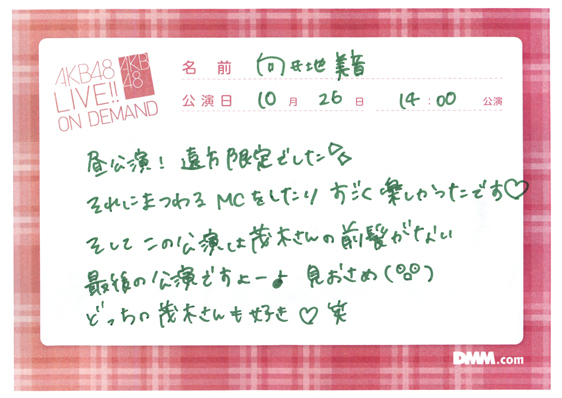 AKB48
LIVE!!
ON DEMAND
AKB
48
名 前 向井地 美音
公演日 10 月 26 日 14:00 公演
昼公演! 遠方限定でした♡♡
それにまつわる MCをしたり すごく楽しかったです♡
そして この公演は茂木さんの前髪がない
最後の公演ですよー♪ 見おさめ
どっちの茂木さんも好き♡ 笑
DMM.com